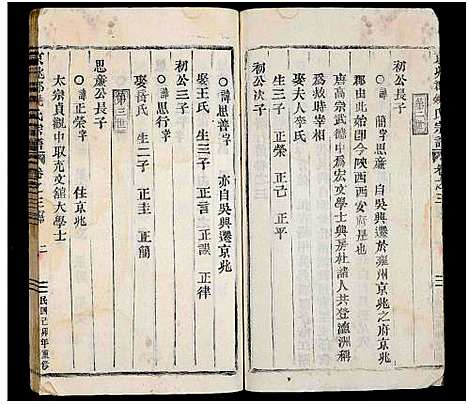 第二世
初公長子
○諱思廉 字簡之 自吳興遷於雍州京兆府京兆
郡由此始卽今陝西西安府是也
唐高宗武德中爲宏文學士與房杜諸人共登瀛洲稱
爲救時宰相
娶夫人李氏
生三子 正榮 正己 正平
初公次子
○諱思善 字 亦自吳興遷京兆
娶王氏 生三子 正言 正謨 正律
初公三子
○諱思行 字
娶岳氏 生二子 正圭 正簡
第三世
思廉公長子
○諱正榮 字 住京兆
太宗貞觀中取充文舘大學士
卷之三
民國己卯年重修